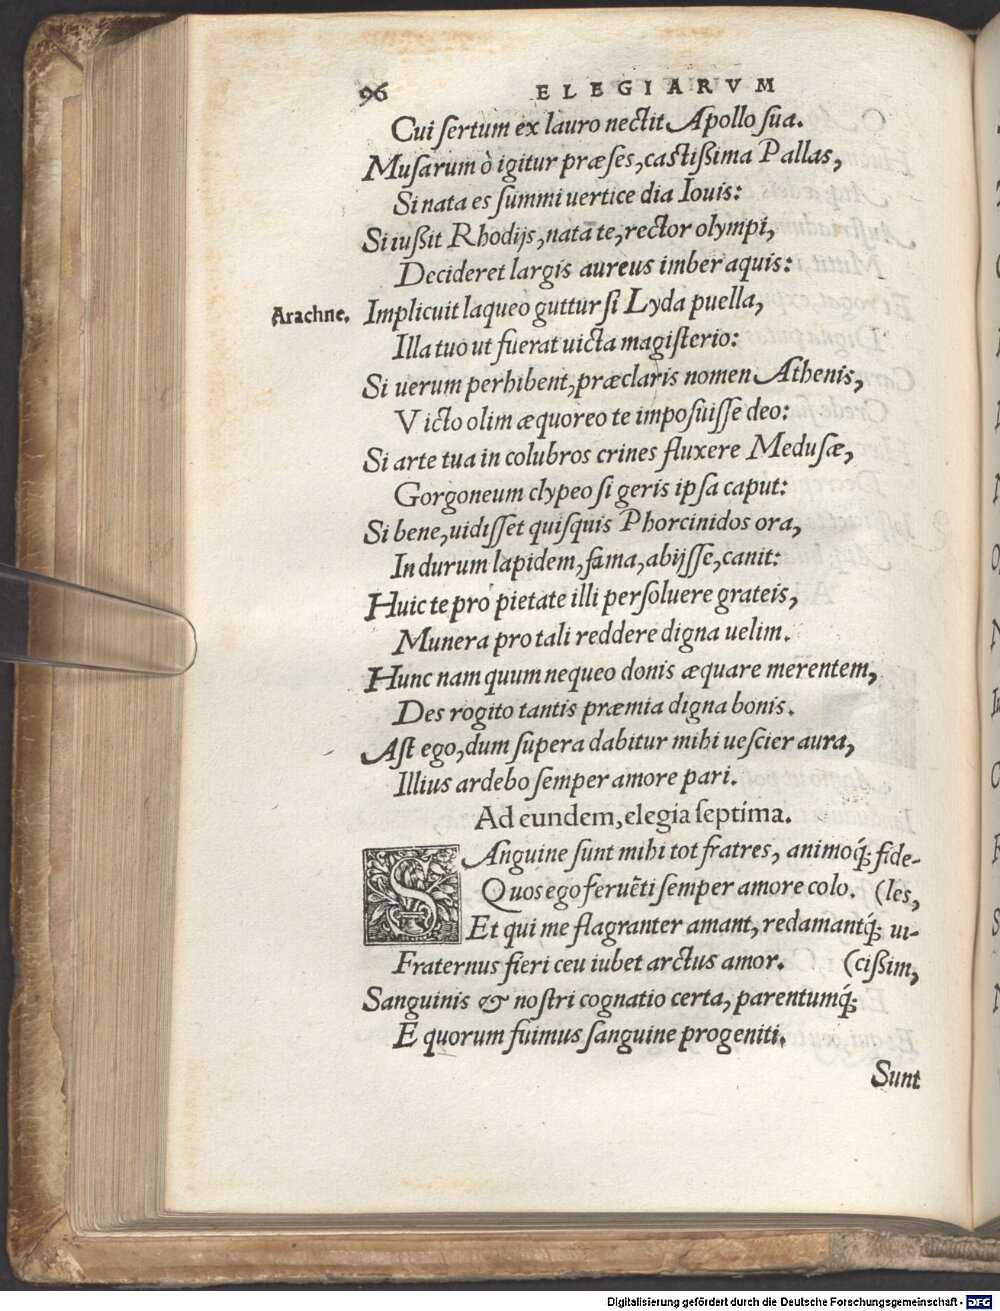 96 ELEGIARVM
Cui sertum ex lauro nectit Apollo sua.
Musarum ò igitur præses, castißima Pallas,
Si nata es summi uertice dia Iouis:
Si iußit Rhodijs, nata te, rector olympi,
Decideret largis aureus imber aquis:
Arachne. Implicuit laqueo guttur si Lyda puella,
Illa tuo ut fuerat uicta magisterio:
Si uerum perhibent, præclaris nomen Athenis,
Victo olim æquoreo te imposuisse deo:
Si arte tua in colubros crines fluxere Medusæ,
Gorgoneum clypeo si geris ipsa caput:
Si bene, uidisset quisquis Phorcinidos ora,
In durum lapidem, fama, abijsse, canit:
Huic te pro pietate illi persoluere grateis,
Munera pro tali reddere digna uelim.
Hunc nam quum nequeo donis æquare merentem,
Des rogito tantis præmia digna bonis.
Ast ego, dum supera dabitur mihi uescier aura,
Illius ardebo semper amore pari.
Ad eundem, elegia septima.
SAnguine sunt mihi tot fratres, animoq́; fide-
Quos ego feruẽti semper amore colo. (les,
Et qui me flagranter amant, redamantq́; ui-
Fraternus fieri ceu iubet arctus amor. (cißim,
Sanguinis & nostri cognatio certa, parentumq́;
E quorum fuimus sanguine progeniti.
Sunt
Digitalisierung gefördert durch die Deutsche Forschungsgemeinschaft - DFG